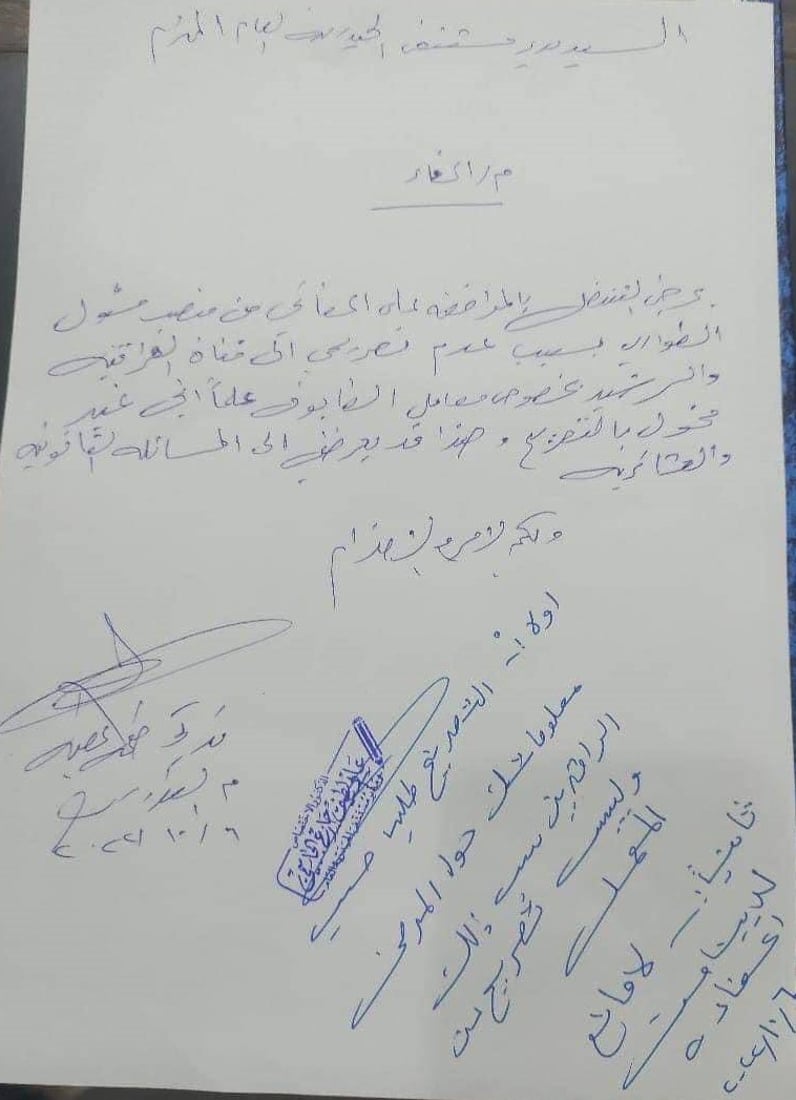 السيد مدير مستشفى الحيدرية العام المحترم
م / اعفاء
يرجى التفضل بالموافقة على اعفائي من منصب مسؤول
الطوارئ بسبب عدم تصريحي الى قناة الفراتية
والرشيد بخصوص معامل الطابوق علماً اني غير
مخول بالتصريح وهذا قد يعرضني الى المسائله القانونيه
والعشائريه
ولكم الامر والاحترام
م
٢٠٢٤/١٠/٦
اولا انه التصريح طلب حسب
معلوماتك حول المرضى
الراقدين
وليس تصريح عن
المعمل
ثانياً - لا مانع
لدينا من
اعفاءه
٢٠٢٤/١٠/٦